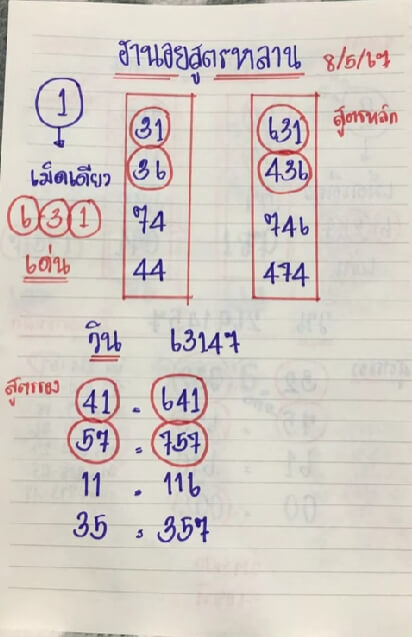 ฮานอยสูตรหลาน 8/5/67
1
เม็ดเดียว
6 3 1
เด่น
31 631 สูตรหลัก
36 436
74 746
44 474
วิน 63147
สูตรรอง
41 - 641
57 - 757
11 - 116
35 - 357